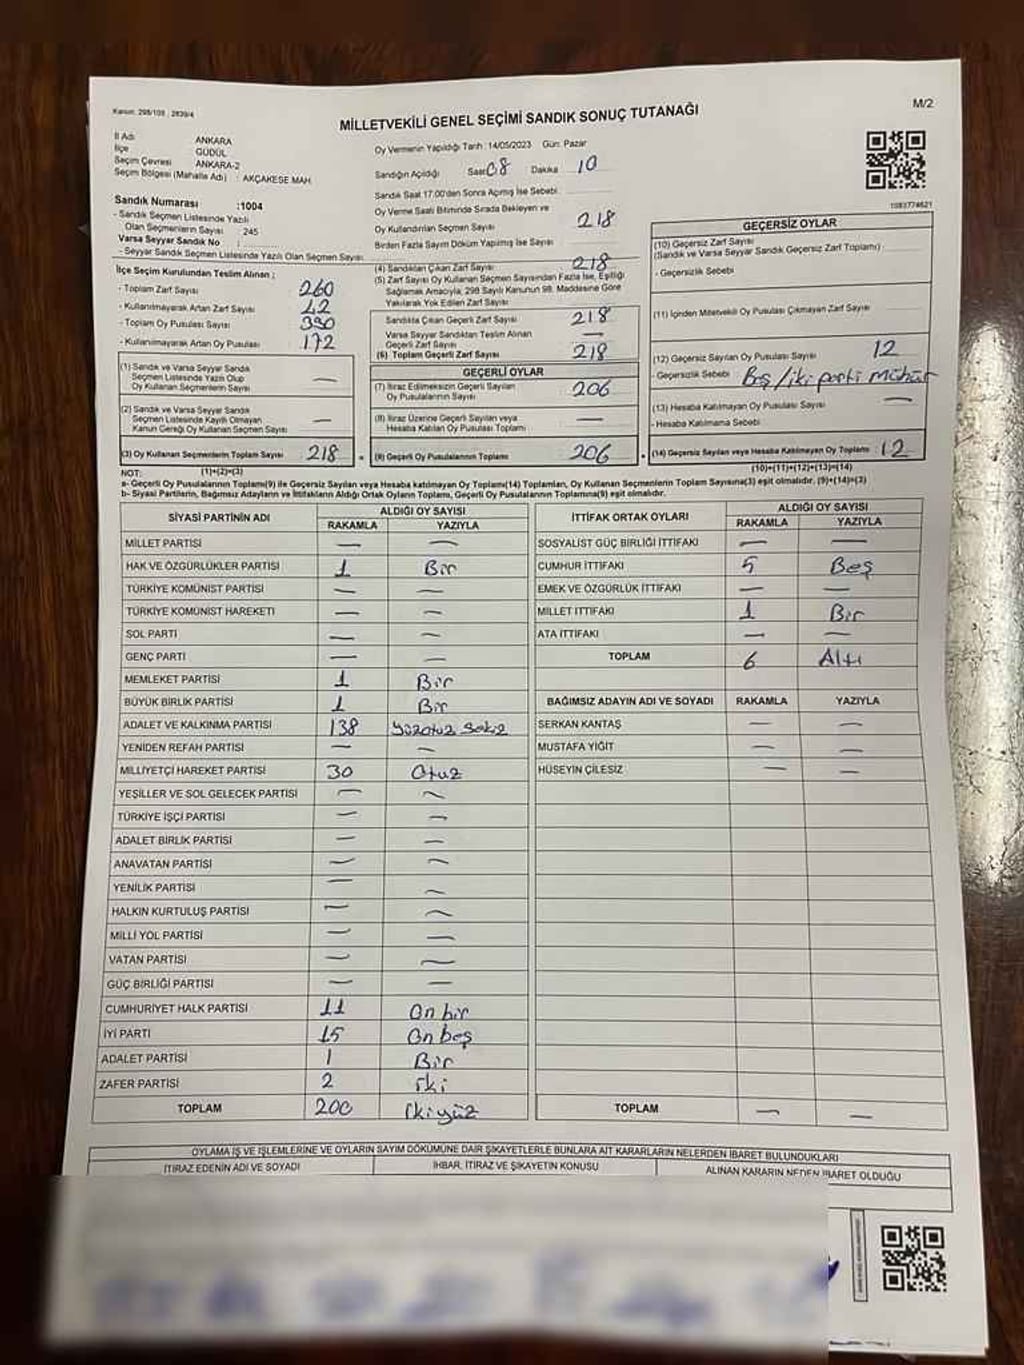 Kanun: 298/105, 2839/4
M/2
MİLLETVEKİLİ GENEL SEÇİMİ SANDIK SONUÇ TUTANAĞI
İl Adı : ANKARA
İlçe : GÜDÜL
Seçim Çevresi : ANKARA-2
Seçim Bölgesi (Mahalle Adı) : AKÇAKESE MAH.
Oy Vermenin Yapıldığı Tarih :14/05/2023 Gün: Pazar
Sandığın Açıldığı Saat 08 Dakika 10
Sandık Saat 17.00'den Sonra Açılmış İse Sebebi:
Oy Verme Saati Bitiminde Sırada Bekleyen ve
Oy Kullandırılan Seçmen Sayısı 218
Birden Fazla Sayım Döküm Yapılmış İse Sayısı
1083774621
Sandık Numarası :1004
- Sandık Seçmen Listesinde Yazılı
Olan Seçmenlerin Sayısı : 245
Varsa Seyyar Sandık No :
- Seyyar Sandık Seçmen Listesinde Yazılı Olan Seçmen Sayısı
İlçe Seçim Kurulundan Teslim Alınan ;
- Toplam Zarf Sayısı 260
- Kullanılmayarak Artan Zarf Sayısı 42
- Toplam Oy Pusulası Sayısı 390
- Kullanılmayarak Artan Oy Pusulası 172
(1) Sandık ve Varsa Seyyar Sandık
Seçmen Listesinde Yazılı Olup
Oy Kullanan Seçmenlerin Sayısı —
(2) Sandık ve Varsa Seyyar Sandık
Seçmen Listesinde Kayıtlı Olmayan
Kanun Gereği Oy Kullanan Seçmen Sayısı —
(3) Oy Kullanan Seçmenlerin Toplam Sayısı 218
(4) Sandıktan Çıkan Zarf Sayısı 218
(5) Zarf Sayısı Oy Kullanan Seçmen Sayısından Fazla İse, Eşitliği
Sağlamak Amacıyla, 298 Sayılı Kanunun 98. Maddesine Göre
Yakılarak Yok Edilen Zarf Sayısı
Sandıkta Çıkan Geçerli Zarf Sayısı 218
Varsa Seyyar Sandıktan Teslim Alınan
Geçerli Zarf Sayısı —
(6) Toplam Geçerli Zarf Sayısı 218
GEÇERLİ OYLAR
(7) İtiraz Edilmeksizin Geçerli Sayılan
Oy Pusulalarının Sayısı 206
(8) İtiraz Üzerine Geçerli Sayılan veya
Hesaba Katılan Oy Pusulası Toplamı —
(9) Geçerli Oy Pusulalarının Toplamı 206
GEÇERSİZ OYLAR
(10) Geçersiz Zarf Sayısı
(Sandık ve Varsa Seyyar Sandık Geçersiz Zarf Toplamı)
- Geçersizlik Sebebi
(11) İçinden Milletvekili Oy Pusulası Çıkmayan Zarf Sayısı
(12) Geçersiz Sayılan Oy Pusulası Sayısı 12
- Geçersizlik Sebebi : Boş/iki parti mühür
(13) Hesaba Katılmayan Oy Pusulası Sayısı —
- Hesaba Katılmama Sebebi
(14) Geçersiz Sayılan veya Hesaba Katılmayan Oy Toplamı : 12
NOT: (1)+(2)=(3) (10)+(11)+(12)+(13)=(14)
a- Geçerli Oy Pusulalarının Toplamı(9) ile Geçersiz Sayılan veya Hesaba katılmayan Oy Toplamı(14) Toplamları, Oy Kullanan Seçmenlerin Toplam Sayısına(3) eşit olmalıdır. (9)+(14)=(3)
b- Siyasi Partilerin, Bağımsız Adayların ve İttifakların Aldığı Ortak Oyların Toplamı, Geçerli Oy Pusulalarının Toplamına(9) eşit olmalıdır.
SİYASİ PARTİNİN ADI ALDIĞI OY SAYISI
RAKAMLA YAZIYLA
MİLLET PARTİSİ — —
HAK VE ÖZGÜRLÜKLER PARTİSİ 1 Bir
TÜRKİYE KOMÜNİST PARTİSİ — —
TÜRKİYE KOMÜNİST HAREKETİ — —
SOL PARTİ — —
GENÇ PARTİ — —
MEMLEKET PARTİSİ 1 Bir
BÜYÜK BİRLİK PARTİSİ 1 Bir
ADALET VE KALKINMA PARTİSİ 138 Yüzotuz Sekiz
YENİDEN REFAH PARTİSİ — —
MİLLİYETÇİ HAREKET PARTİSİ 30 Otuz
YEŞİLLER VE SOL GELECEK PARTİSİ — —
TÜRKİYE İŞÇİ PARTİSİ — —
ADALET BİRLİK PARTİSİ — —
ANAVATAN PARTİSİ — —
YENİLİK PARTİSİ — —
HALKIN KURTULUŞ PARTİSİ — —
MİLLİ YOL PARTİSİ — —
VATAN PARTİSİ — —
GÜÇ BİRLİĞİ PARTİSİ — —
CUMHURİYET HALK PARTİSİ 11 On bir
İYİ PARTİ 15 On beş
ADALET PARTİSİ 1 Bir
ZAFER PARTİSİ 2 iki
TOPLAM 200 ikiyüz
İTTİFAK ORTAK OYLARI ALDIĞI OY SAYISI
RAKAMLA YAZIYLA
SOSYALİST GÜÇ BİRLİĞİ İTTİFAKI — —
CUMHUR İTTİFAKI 5 Beş
EMEK VE ÖZGÜRLÜK İTTİFAKI — —
MİLLET İTTİFAKI 1 Bir
ATA İTTİFAKI — —
TOPLAM 6 Altı
BAĞIMSIZ ADAYIN ADI VE SOYADI RAKAMLA YAZIYLA
SERKAN KANTAŞ — —
MUSTAFA YİĞİT — —
HÜSEYİN ÇİLESİZ — —
TOPLAM — —
OYLAMA İŞ VE İŞLEMLERİNE VE OYLARIN SAYIM DÖKÜMÜNE DAİR ŞİKAYETLERLE BUNLARA AİT KARARLARIN NELERDEN İBARET BULUNDUKLARI
İTİRAZ EDENİN ADI VE SOYADI İHBAR, İTİRAZ VE ŞİKAYETİN KONUSU ALINAN KARARIN NEDEN İBARET OLDUĞU